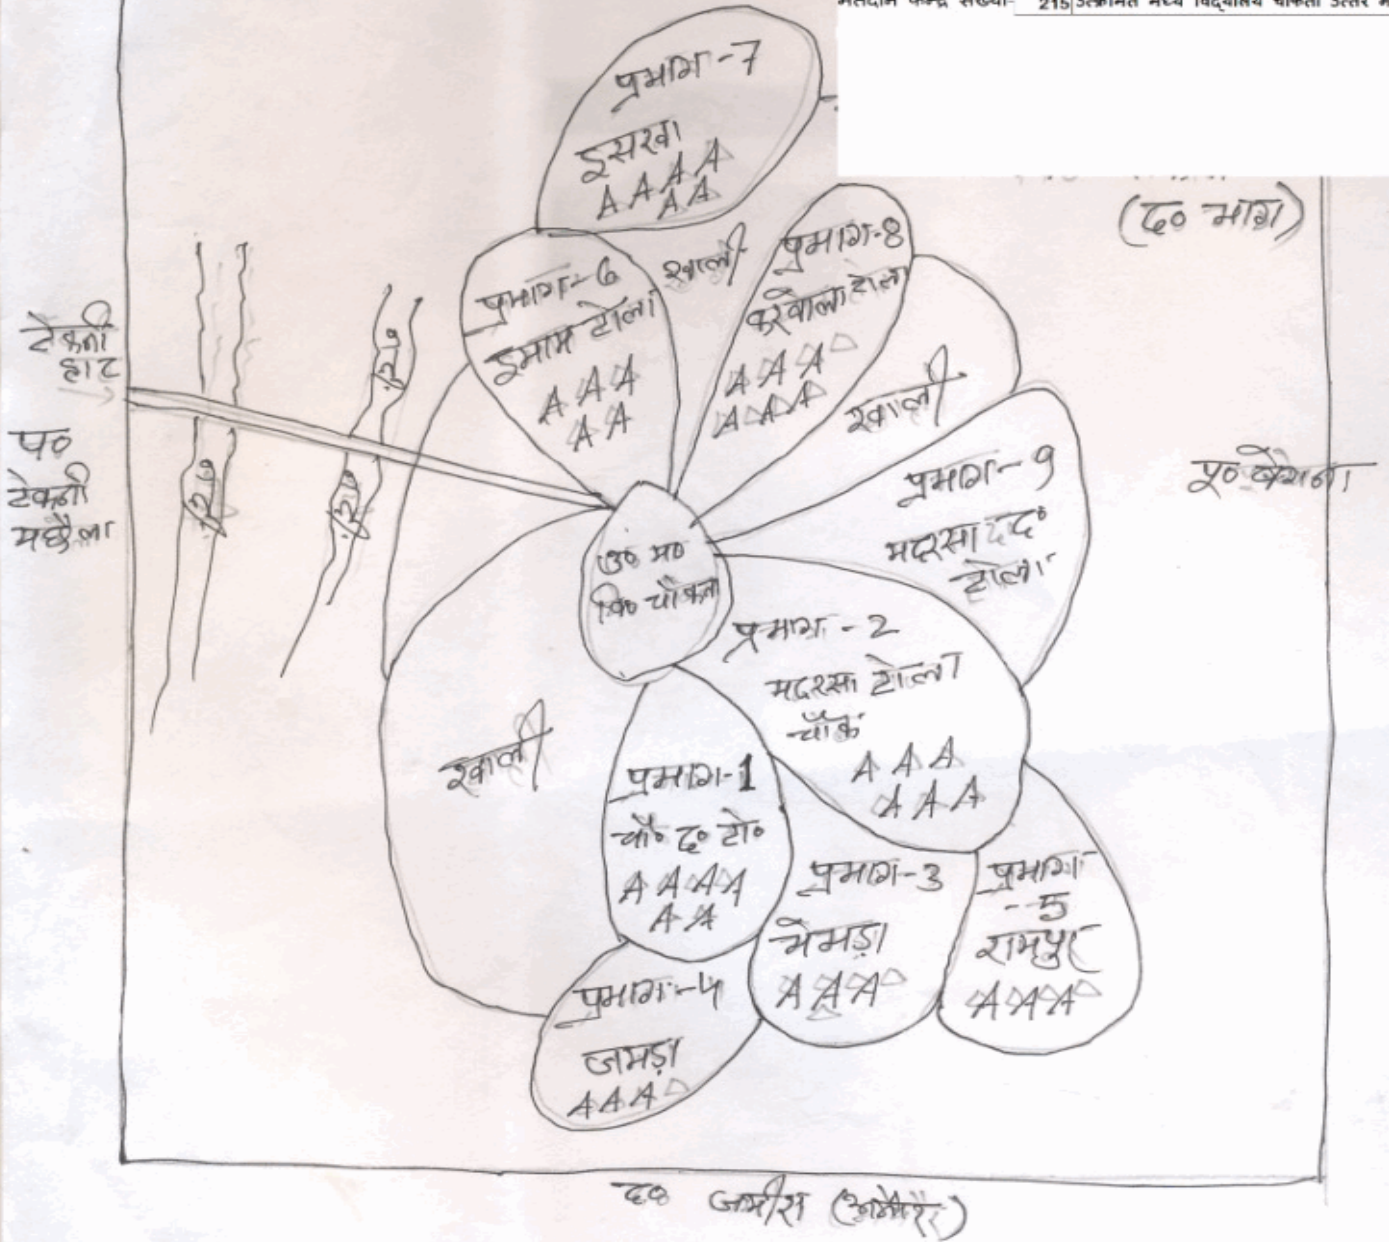 मतदान केन्द्र संख्या- 215 उत्क्रमित मध्य विद्यालय चौकता उत्तर
(द० भाग)
प्रभाग-7
इसरवा
A A A A
A A
प्रभाग-6
इमाम टोला
A A A
A A
खाली
प्रभाग-8
करवोला टोला
A A A
A A A
खाली
टेकनी
हाट
प०
टेकनी
मछैला
प्रभाग-9
मदरसा द०
टोला
पू०
उ० म०
वि० चौकता
प्रभाग-2
मदरसा टोला
चौक
A A A
A A A
खाली
प्रभाग-1
चौ० द० टो०
A A A A
A A
प्रभाग-3
भेभड़ा
A A A
प्रभाग
-5
रामपुर
A A A
प्रभाग-4
जमड़ा
A A A
द०